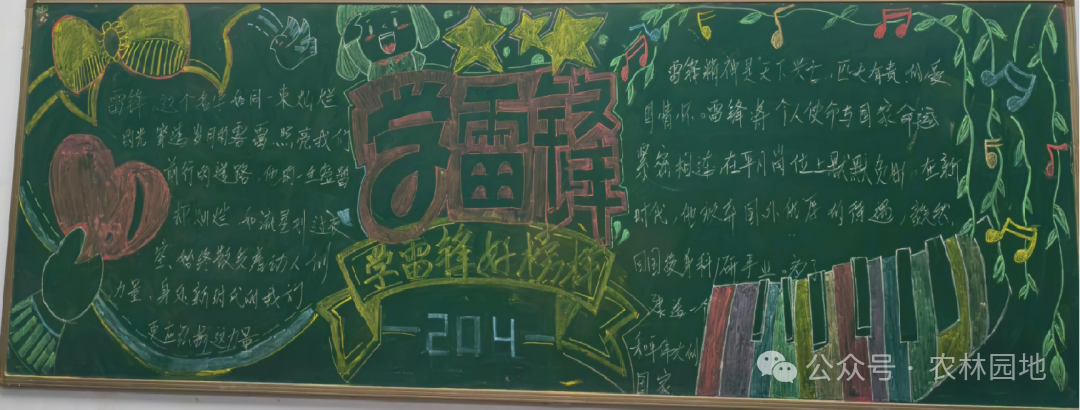 学雷锋
学雷锋好榜样
204
雷锋,这个名字如同一束灿烂
阳光穿透岁月的云雾,照亮我们
前行的道路.他的一生短暂
却灿烂,如流星划过夜
空,始终散发着动人的
力量,身处新时代的我们
更应
力量
雷锋精神是天下兴亡,匹夫有责的爱
国情怀。雷锋将个人使命与国家命运
紧密相连,在平凡岗位上默默
在新
时代,他
国外
待遇,毅然
回国投身科研事业,为了
建造一个
国家
公众号·农林园地